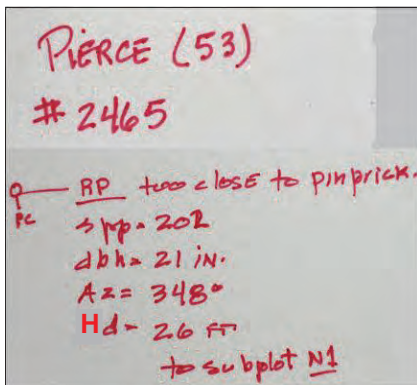 PIERCE (53)
# 2465
RP too close to pinprick.
PC
spp = 202
dbh = 21 IN.
Az = 348°
Hd = 26 FT
to subplot N1